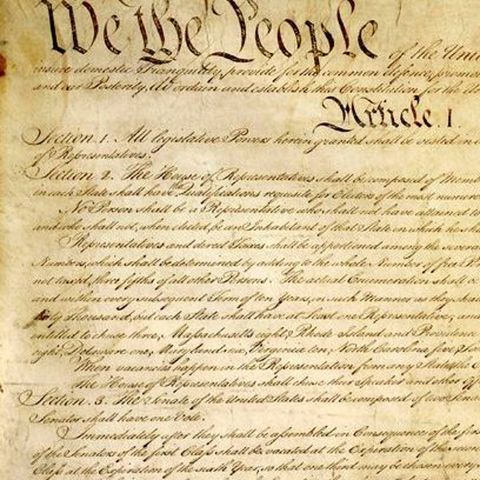 We the People of the Unit
insure domestic Tranquility, provide for the common defence, promote
and our Posterity, do ordain and establish this Constitution for the Un
Article. I.
Section. 1. All legislative Powers herein granted shall be vested in
of Representatives.
Section. 2. The House of Representatives shall be composed of Memb
in each State shall have the Qualifications requisite for Electors of the most numerou
No Person shall be a Representative who shall not have attained to
and who shall not, when elected, be an Inhabitant of that State in which he sha
Representatives and direct Taxes shall be apportioned among the severa
Numbers, which shall be determined by adding to the whole Number of free P
not taxed, three fifths of all other Persons. The actual Enumeration shall be
and within every subsequent Term of ten Years, in such Manner as they sha
thirty Thousand, but each State shall have at Least one Representative; and
entitled to chuse three, Massachusetts eight, Rhode-Island and Providence
eight, Delaware one, Maryland six, Virginia ten, North Carolina five, So
When vacancies happen in the Representation from any State, the
The House of Representatives shall chuse their Speaker and other Of
Section. 3. The Senate of the United States shall be composed of two Sena
Senator shall have one Vote.
Immediately after they shall be assembled in Consequence of the firs
of the Senators of the first Class shall be vacated at the Expiration of the secon
Class at the Expiration of the sixth Year, so that one third may be chosen every